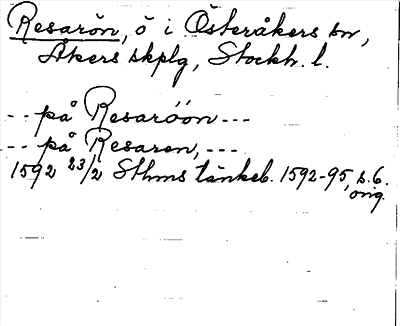 Resarön, ö i Österåkers sn,
Åkers skplg, Stockh. l.
-- på Resaröön ---
-- på Resaren, ---
1592 23/2 Sthms tänkeb. 1592-95, s. 6.
orig.